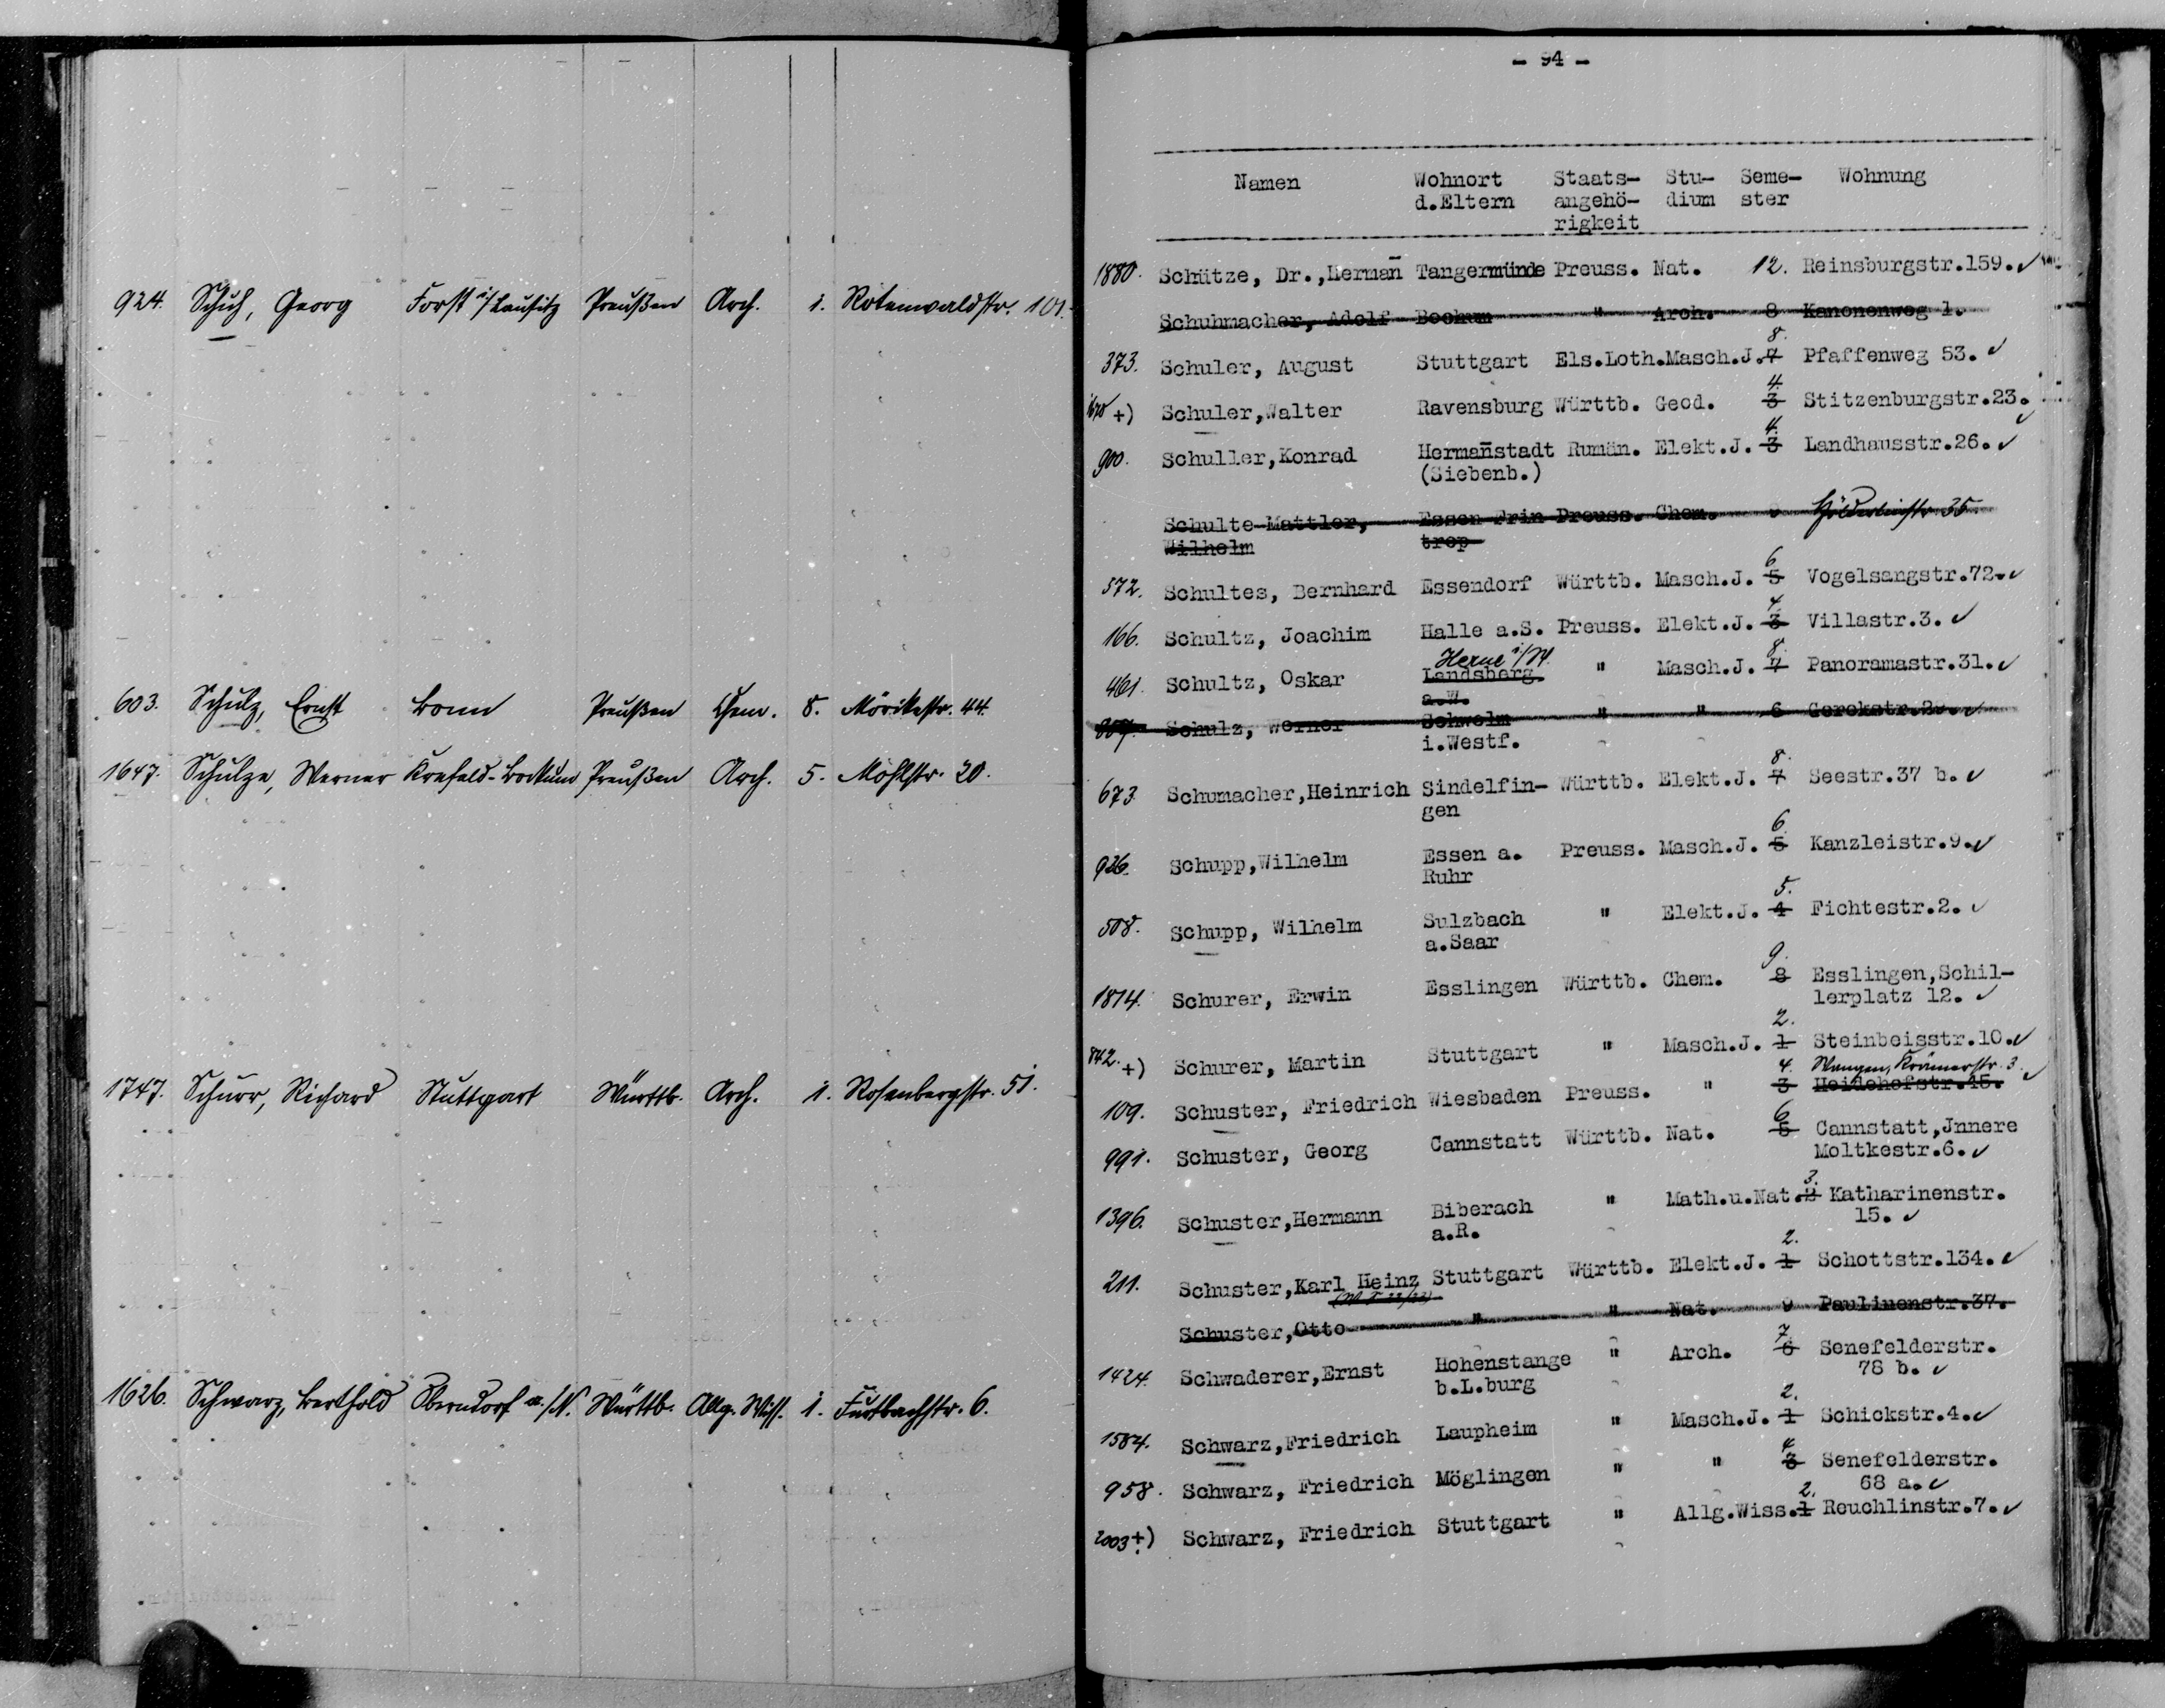 924. Schuh, Georg Forst i/Lausitz Preußen Arch. 1. Rotenwaldstr. 101.
603. Schulz, Ernst Bonn Preußen Chem. 8. Mörikestr. 44.
1647. Schulze, Werner Krefeld-Bockum Preußen Arch. 5. Möhlstr. 20.
1747. Schurr, Richard Stuttgart Württb. Arch. 1. Rosenbergstr. 51.
1626. Schwarz, Berthold Oberndorf a./N. Württb. Allg. Wiss. 1. Furtbachstr. 6.
- 94 -
Namen Wohnort Staats- Stu- Seme- Wohnung
d.Eltern angehö- dium ster
rigkeit
1880. Schütze, Dr.,Herman̄ Tangermünde Preuss. Nat. 12. Reinsburgstr.159. ✓
Schuhmacher, Adolf Bochum " Arch. 8 Kanonenweg 1.
8.
373. Schuler, August Stuttgart Els.Loth.Masch.J. 7 Pfaffenweg 53. ✓
4.
1678 +) Schuler,Walter Ravensburg Württb. Geod. 3 Stitzenburgstr.23. ✓
4.
900. Schuller,Konrad Herman̄stadt Rumän. Elekt.J. 3 Landhausstr.26. ✓
(Siebenb.)
Schulte-Mattler, Essen Frin Preuss. Chem. Hölderlinstr. 35.
Wilhelm trop
6
572. Schultes, Bernhard Essendorf Württb. Masch.J. 5 Vogelsangstr.72. ✓
4.
166. Schultz, Joachim Halle a.S. Preuss. Elekt.J. 3 Villastr.3. ✓
Herne i/W. 8.
461. Schultz, Oskar Landsberg " Masch.J. 7 Panoramastr.31. ✓
a.W.
Schulz, Werner Schwelm " " 6 Gerokstr.2 ✓
i.Westf.
8.
673. Schumacher,Heinrich Sindelfin- Württb. Elekt.J. 7 Seestr.37 b. ✓
gen
6
926. Schupp,Wilhelm Essen a. Preuss. Masch.J. 5 Kanzleistr.9. ✓
Ruhr
5.
508. Schupp, Wilhelm Sulzbach " Elekt.J. 4 Fichtestr.2. ✓
a.Saar
9.
1814. Schurer, Erwin Esslingen Württb. Chem. 8 Esslingen,Schil-
lerplatz 12. ✓
2.
842. +) Schurer, Martin Stuttgart " Masch.J. 1 Steinbeisstr.10. ✓
4. Wangen, Krämerstr. 3.
109. Schuster, Friedrich Wiesbaden Preuss. " 3 Heidehofstr.15. ✓
6
991. Schuster, Georg Cannstatt Württb. Nat. 5 Cannstatt,Jnnere
Moltkestr.6. ✓
3.
1396. Schuster,Hermann Biberach " Math.u.Nat. 2 Katharinenstr.
a.R. 15. ✓
2.
211. Schuster,Karl Heinz Stuttgart Württb. Elekt.J. 1 Schottstr.134. ✓
Schuster,Otto " " Nat. 9 Paulinenstr.37.
7
1424. Schwaderer,Ernst Hohenstange " Arch. 6 Senefelderstr.
b.L.burg 78 b. ✓
2.
1584. Schwarz,Friedrich Laupheim " Masch.J. 1 Schickstr.4. ✓
4
958. Schwarz, Friedrich Möglingen " " 3 Senefelderstr.
68 a. ✓
2.
2003 +) Schwarz, Friedrich Stuttgart " Allg.Wiss. 1 Reuchlinstr.7. ✓